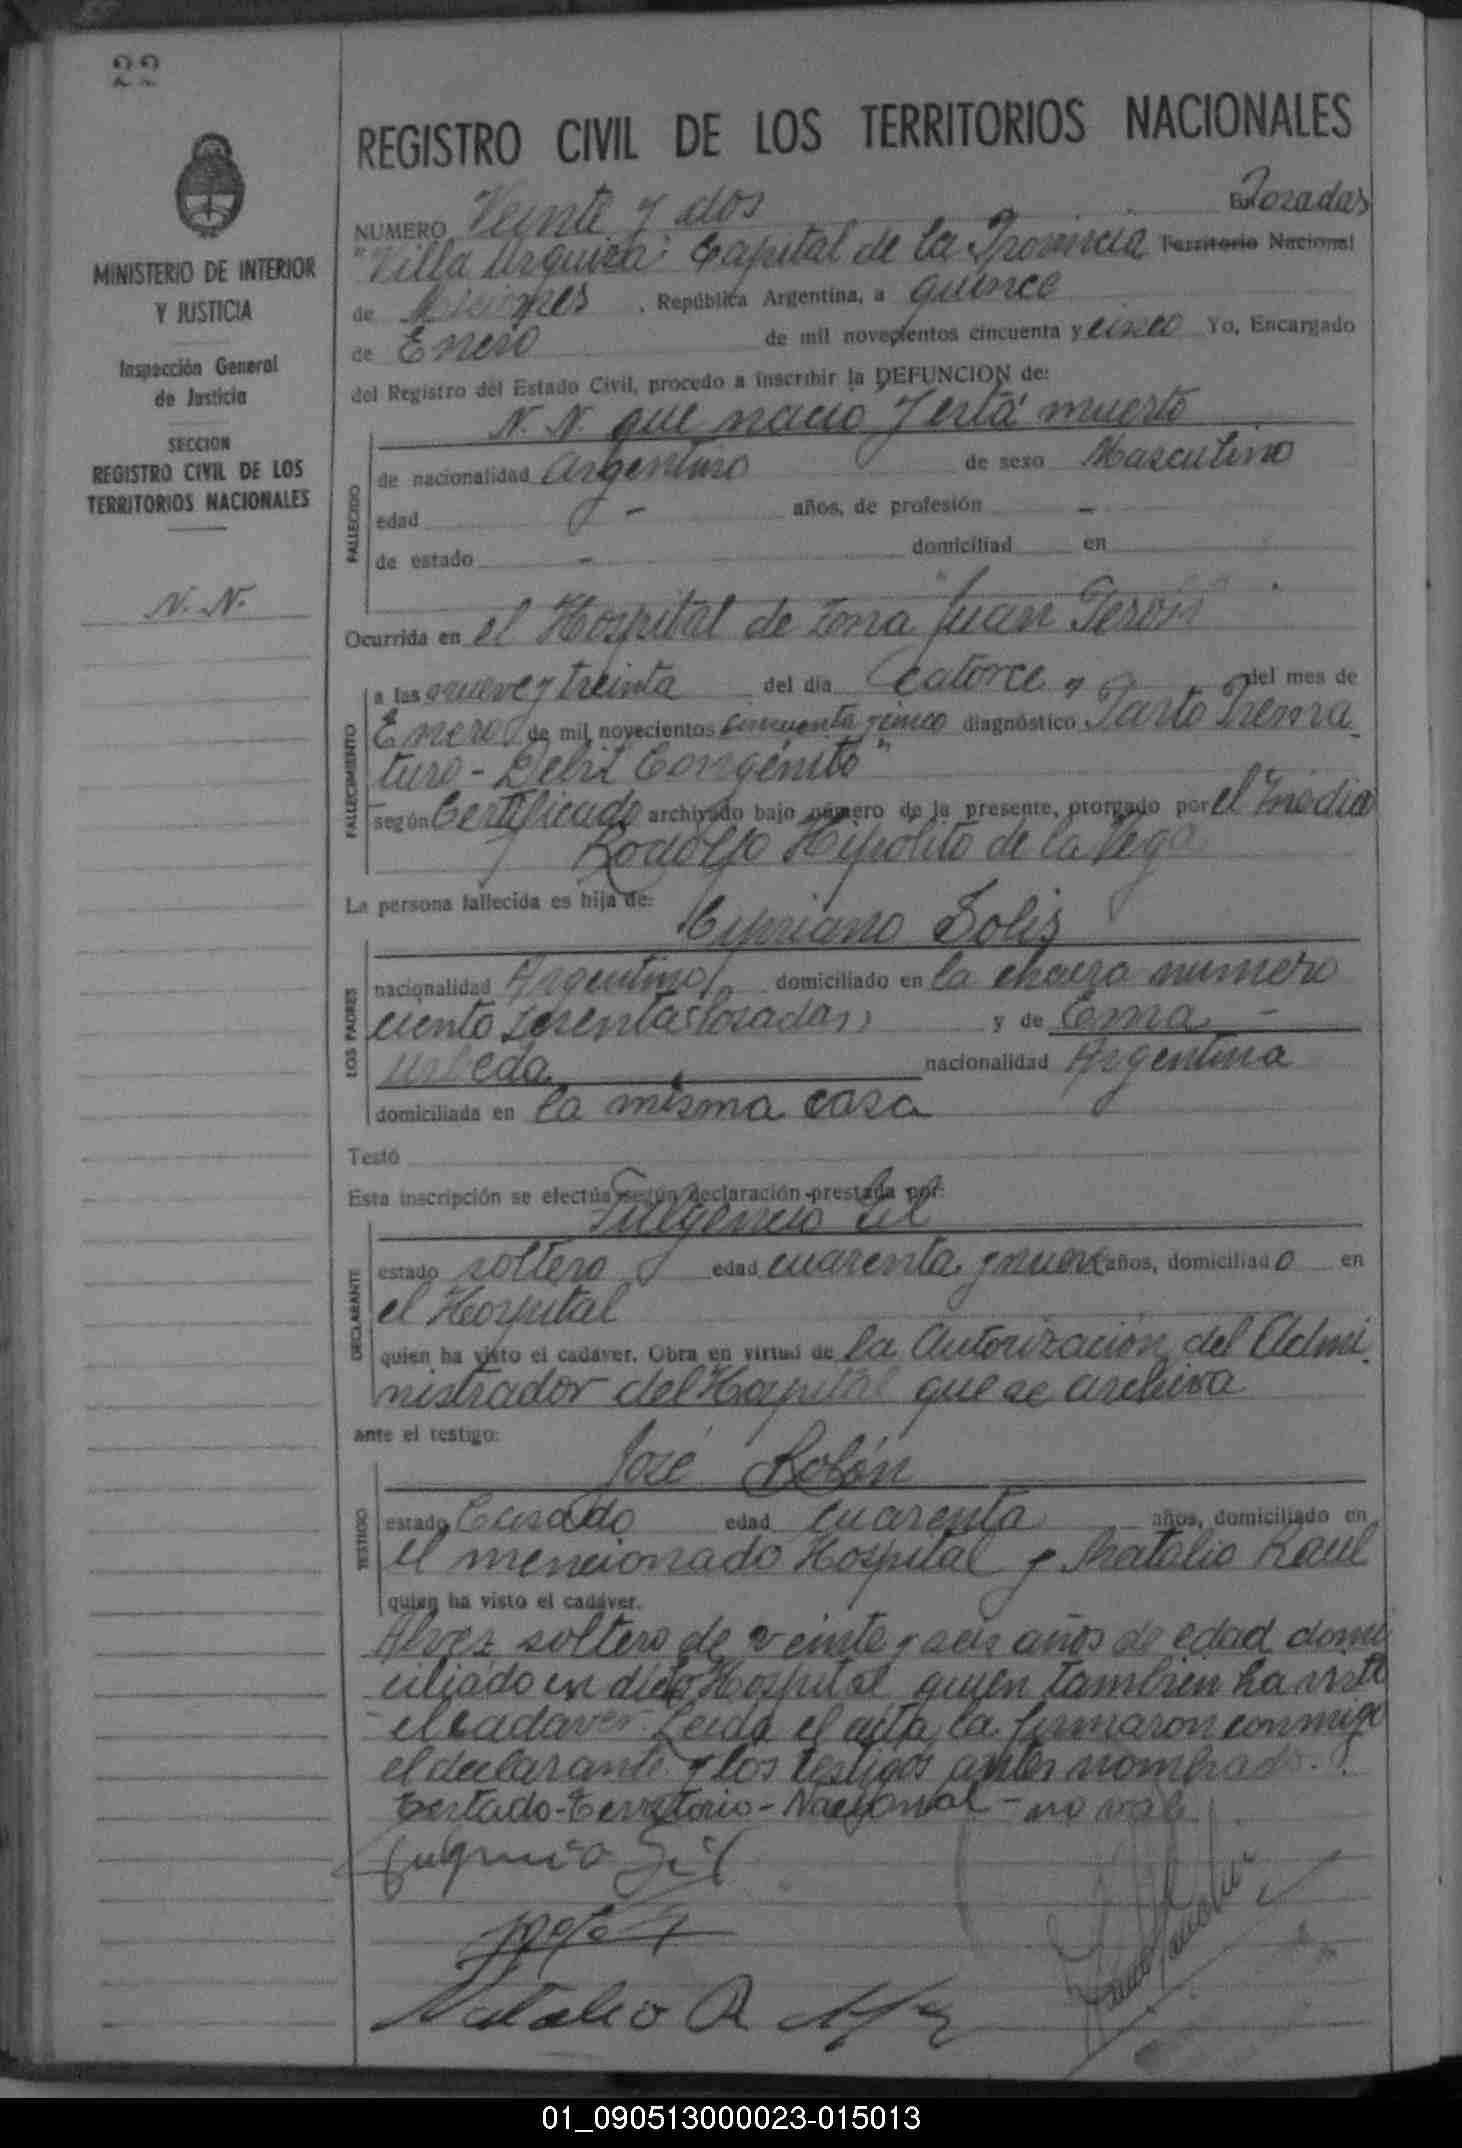 22
MINISTERIO DE INTERIOR
Y JUSTICIA
Inspección General
de Justicia
SECCION
REGISTRO CIVIL DE LOS
TERRITORIOS NACIONALES
N. N.
REGISTRO CIVIL DE LOS TERRITORIOS NACIONALES
NUMERO Veinte y dos En Posadas
"Villa Urquiza" Capital de la Provincia Territorio Nacional
de Misiones, República Argentina, a quince
de Enero de mil novecientos cincuenta y cinco Yo, Encargado
del Registro del Estado Civil, procedo a inscribir la DEFUNCION de:
N. N. que nació y está muerto
FALLECIDO
de nacionalidad Argentino de sexo Masculino
edad - años, de profesión -
de estado - domiciliad en
Ocurrida en el Hospital de Zona "Juan Perón"
FALLECIMIENTO
a las nueve y treinta del día Catorce del mes de
Enero de mil novecientos cincuenta y cinco diagnóstico "Parto Prema
turo - Debil Congénito"
según Certificado archivado bajo número de la presente, otorgado por el médico
Rodolfo Hipolito de la Vega
La persona fallecida es hija de:
Cipriano Solis
LOS PADRES
nacionalidad Argentino domiciliado en la chacra numero
ciento (Posadas) y de Ema -
nacionalidad Argentina
domiciliada en la misma casa
Testó
Esta inscripción se efectúa según declaración prestada por:
Fulgencio Gil
DECLARANTE
estado soltero edad cuarenta y nueve años, domiciliado en
el Hospital
quien ha visto el cadáver. Obra en virtud de la Autorización del Admi
nistrador del Hospital que se archiva
ante el testigo:
José Rolón
TESTIGO
estado Casado edad cuarenta años, domiciliado en
el mencionado Hospital y Natalio Raul
quien ha visto el cadáver.
Alvez soltero de veinte y seis años de edad domi
ciliado en dicho Hospital quien tambien ha visto
el cadaver. Leida el acta, la firmaron conmigo
el declarante y los testigos antes nombrados.
Testado-Territorio-Nacional - no vale
Fulgencio Gil
Natalio R Alvez
01_090513000023-015013